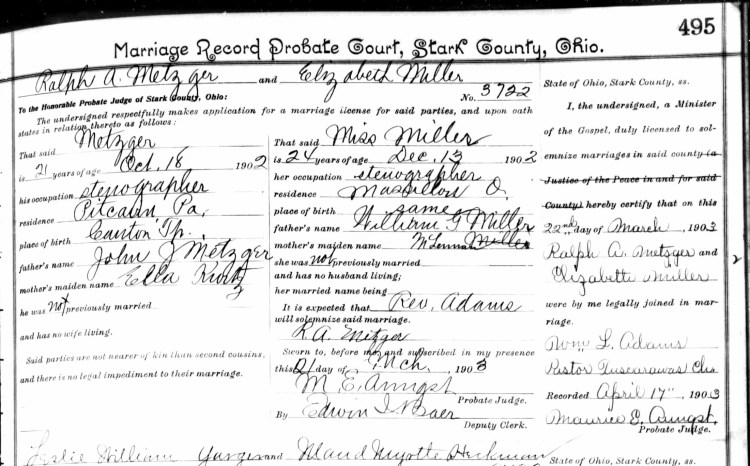 495
Marriage Record Probate Court, Stark County, Ohio.
Ralph A. Metzger and Elizabeth Miller
No. 3722
To the Honorable Probate Judge of Stark County, Ohio:
The undersigned respectfully makes application for a marriage license for said parties, and upon oath
states in relation thereto as follows:
That said Metzger
is 21 years of age Oct. 18 1902
his occupation stenographer
residence Pitcairn Pa.
place of birth Canton Tp.
father's name John J Metzger
mother's maiden name Ella Kurtz
he was not previously married
and has no wife living.
Said parties are not nearer of kin than second cousins,
and there is no legal impediment to their marriage.
That said Miss Miller
is 24 years of age Dec. 13 1902
her occupation stenographer
residence Massillon O.
place of birth same
father's name William F Miller
mother's maiden name Miller
she was not previously married
and has no husband living;
her married name being
It is expected that Rev. Adams
will solemnize said marriage.
R A. Metzger
Sworn to, before me, and subscribed in my presence
this 21 day of Mch. 1903
M. E. Aungst
Probate Judge.
By Edwin J. Baer
Deputy Clerk.
State of Ohio, Stark County, ss.
I, the undersigned, a Minister
of the Gospel, duly licensed to sol-
emnize marriages in said county (a
Justice of the Peace in and for said
County) hereby certify that on this
22nd day of March 1903
Ralph A. Metzger and
Elizabeth Miller
were by me legally joined in mar-
riage.
Wm L. Adams
Pastor Tuscarawas Chs
Recorded April 17" 1903
Maurice E. Aungst.
Probate Judge.
Leslie William and Maud Myrtle
State of Ohio, Stark County, ss.